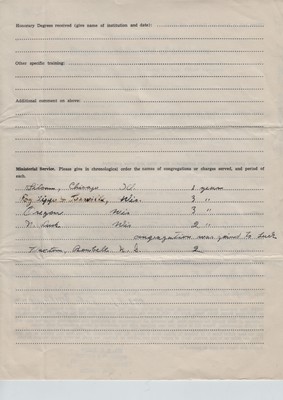 Honorary Degrees received (give name of institution and date):
Other specific training:
Additional comment on above:
Ministerial Service. Please give in chronological order the names of congregations or charges served, and period of
each.
Salem, Chicago Ill. 1 year
Wis. 3 "
Oregon Wis 3 "
N. Luck Wis 2 "
congregation was joined to Luck
N. D. 2